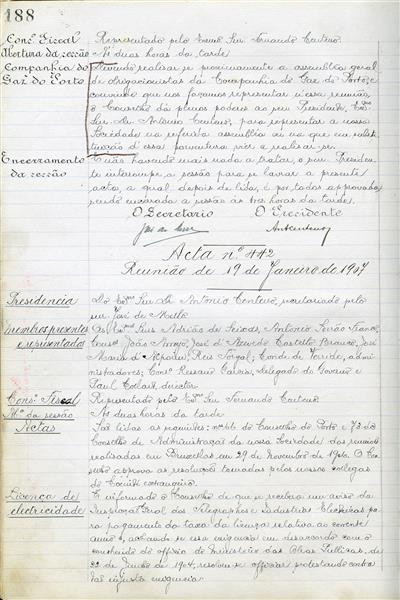 188
Cons.º Fiscal Representado pelo Exmo Snr. Fernando Centeno
Abertura da sessão Ás duas horas da tarde
Companhia do Gaz do Porto
Devendo realisar-se proximamente a assembléa geral
de obrigacionistas da Companhia do Gaz do Porto, e
convindo que nos façamos representar n'essa reunião,
o Conselho dá plenos poderes ao seu Presidente, Exmo
Snr. Antonio Centeno, para representar a nossa
Sociedade na referida assembléa ou na que em substi-
tuição d'essa porventura vier a realisar-se.
Encerramento da sessão
E não havendo mais nada a tratar, o snr. Presiden-
te interrompe a sessão para se lavrar a presente
acta, a qual, depois de lida, é por todos approvada,
sendo encerrada a sessão ás tres horas da tarde.
O Secretario O Presidente
Acta nº 442
Reunião de 19 de Janeiro de 1907
Presidencia
Do Exmo Snr. Antonio Centeno, secretariado pelo
snr. José de Mello
Membros presentes e representados
Os Exmos Snrs. Adrião de Seixas, Antonio
João Arroyo, José d'Azevedo Castello Branco, José
Maria d'Alpoim, Reis Torgal, Conde de admi-
nistradores; Cons.º delegado do Governo e
Paul director
Cons.º Fiscal Representado pelo Exmo Snr. Fernando Centeno
Ab.ª da sessão Ás duas horas da tarde
Actas
São lidas as seguintes: nº do Conselho do Porto e 73 do
Conselho de Administração da nossa Sociedade das reuniões
realisadas em Bruxellas em 29 de Novembro de 1906. O Con-
selho approva as resoluções tomadas pelos nossos collegas
do Comité estrangeiro.
Licença de electricidade
É informado o Conselho de que se recebera um aviso da
Inspecção Geral dos Telegraphos e Industrias Electricas para
pagamento da taxa da licença relativa ao corrente
anno e, achando-se essa exigencia em desaccordo com o
conteudo do officio do Ministerio das Obras Publicas, de
de Junho de 1904, resolve-se officiar protestando contra
tão injusta exigencia